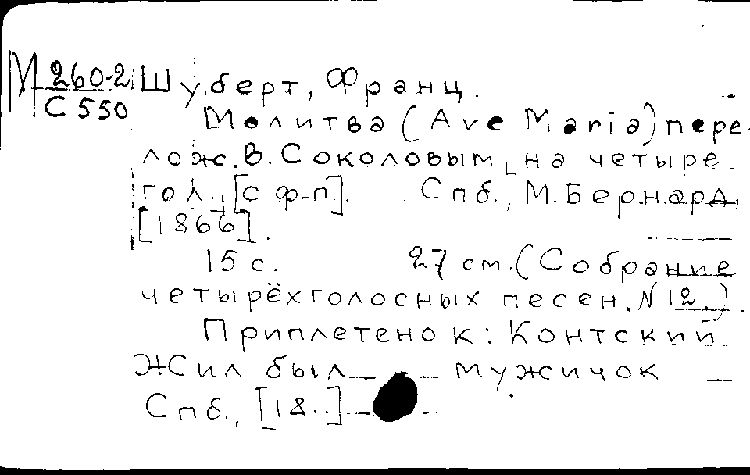 М 260-2 Шуберт, Франц.
С 550
Молитва (Ave Maria) пере-
лож. В. Соколовым на четыре
гол. [с ф-п]. Спб., М. Бернард,
[1866].
15 с. 27 см. (Собрание
четырёхголосных песен. № 12.).
Приплетено к: Контский
Жил был мужичок
Спб., [18..]